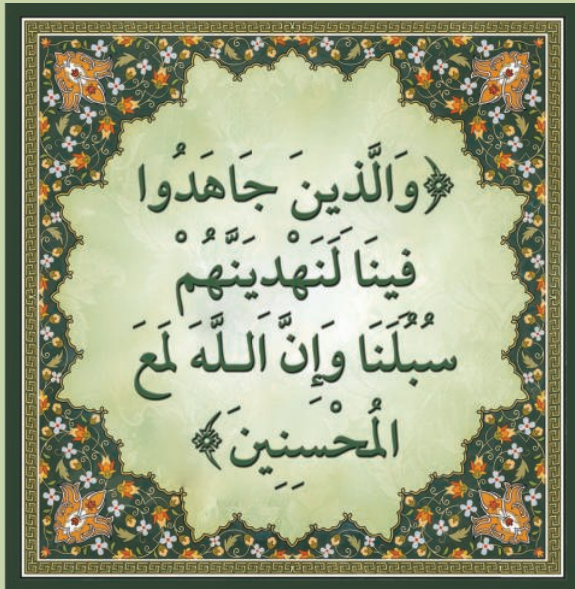 ﴿وَالَّذينَ جَاهَدُوا
فينَا لَنَهْدِيَنَّهُمْ
سُبُلَنَا وَإِنَّ اللَّهَ لَمَعَ
الْمُحْسِنِينَ﴾